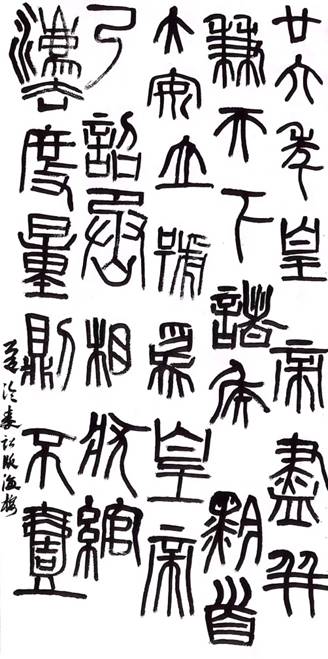 廿六年皇帝盡并
兼天下諸侯黔首
大安立號為皇帝
乃詔丞相狀綰
灋度量則不壹
秦詔版